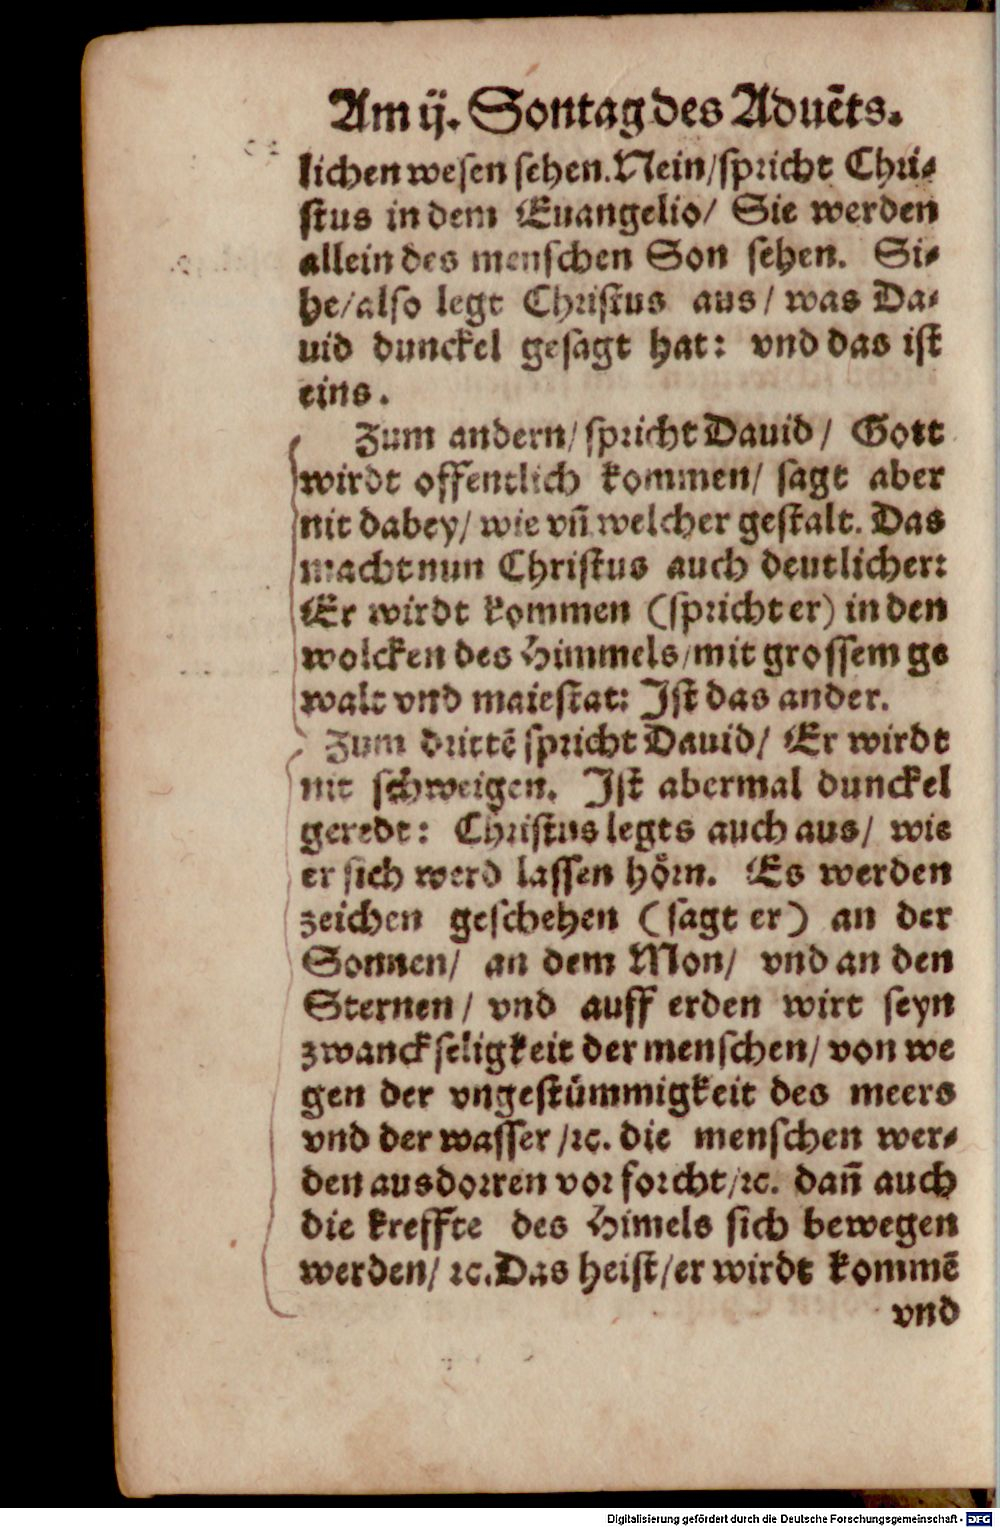 Am ij. Sontag des Aduẽts.
lichen wesen sehen. Nein/ spricht Chri⸗
stus in dem Euangelio/ Sie werden
allein des menschen Son sehen. Si⸗
he/ also legt Christus aus/ was Da⸗
uid dunckel gesagt hat: vnd das ist
eins.
Zum andern/ spricht Dauid/ Gott
wirdt offentlich kommen/ sagt aber
nit dabey/ wie vñ welcher gestalt. Das
macht nun Christus auch deutlicher:
Er wirdt kommen (spricht er) in den
wolcken des Himmels/ mit grossem ge
walt vnd maiestat: Ist das ander.
Zum drittẽ spricht Dauid/ Er wirdt
nit schweigen. Ist abermal dunckel
geredt: Christus legts auch aus/ wie
er sich werd lassen hörn. Es werden
zeichen geschehen (sagt er) an der
Sonnen/ an dem Mon/ vnd an den
Sternen/ vnd auff erden wirt seyn
zwanckseligkeit der menschen/ von we
gen der vngestümmigkeit des meers
vnd der wasser/ ꝛc. die menschen wer⸗
den ausdorren vor forcht/ ꝛc. dañ auch
die kreffte des Himels sich bewegen
werden/ ꝛc. Das heist/ er wirdt kommẽ
vnd
Digitalisierung gefördert durch die Deutsche Forschungsgemeinschaft - DFG